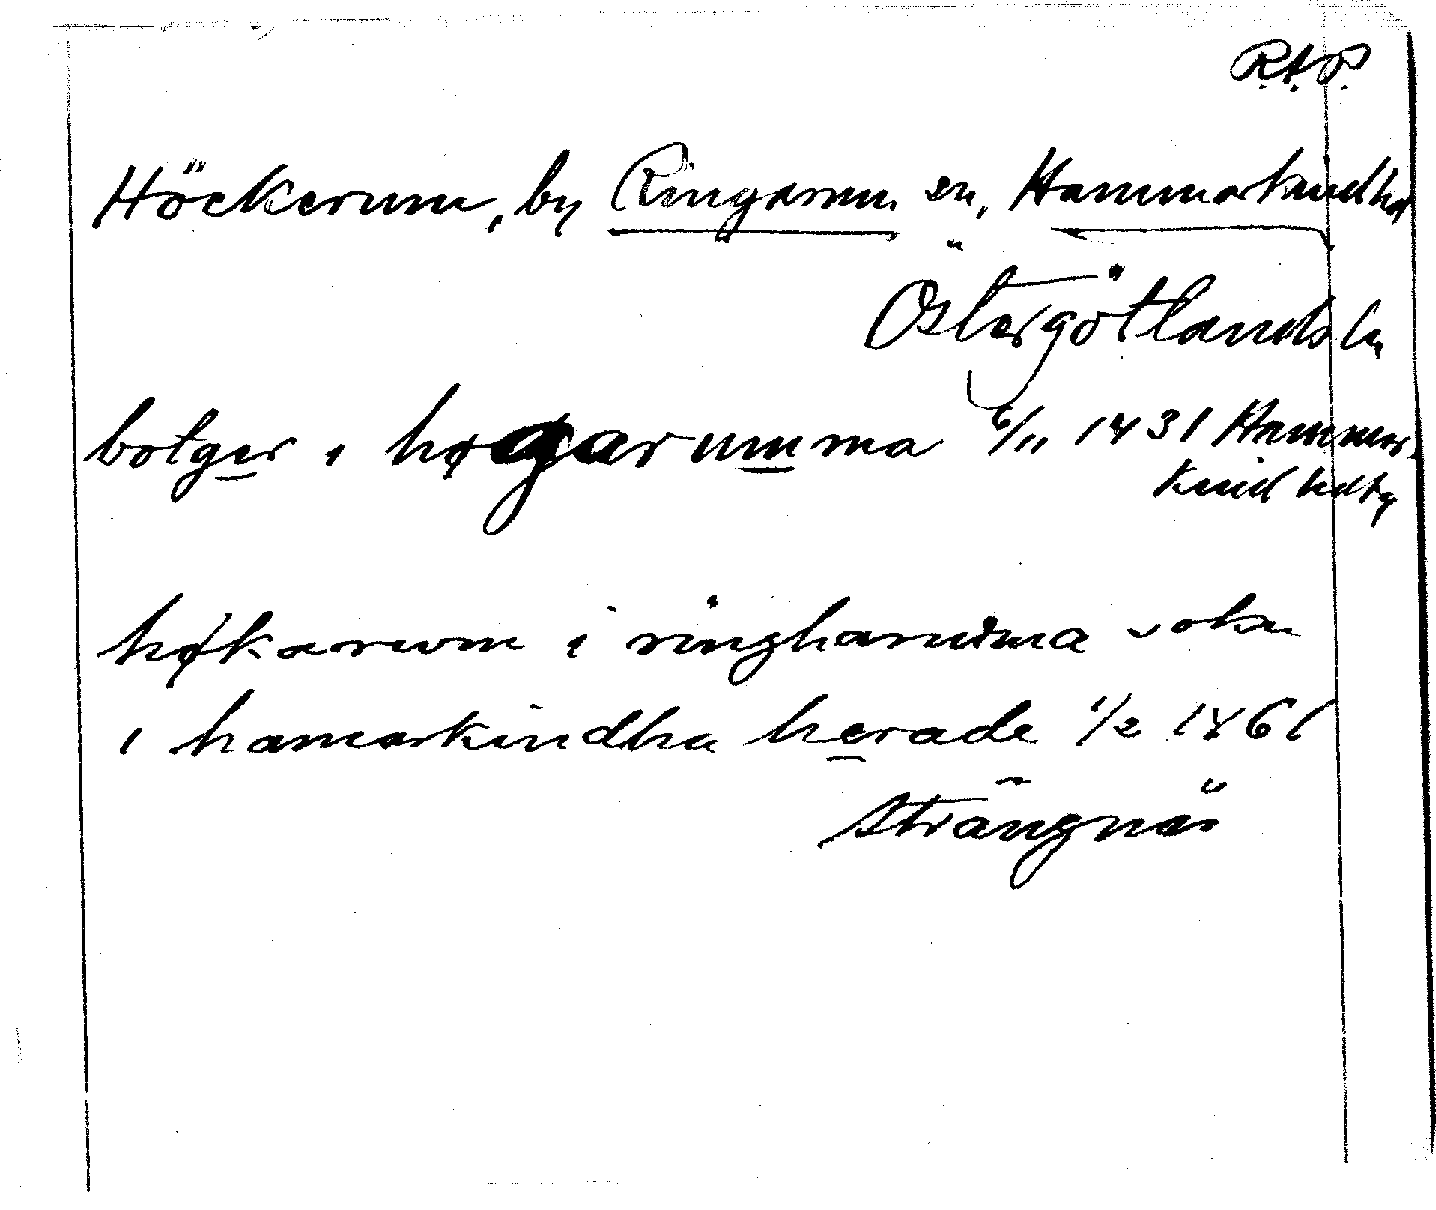 R.A.P.
Höckerum, by Ringarum sn, Hammarkind hd
Östergötlands ln
botger i høgarumma 6/11 1431 Hammar-
kind hdtg
høkarum i ringharuma sokn
i hamarkindha herade 1/2 1461
Strängnäs